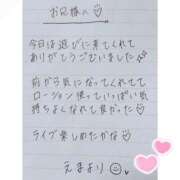 お兄様へ♡
今日は遊びに来てくれて
ありがとうございました
前から気になってくれてて
ローション使っていっぱい気
持ちよくなれて良かった♡
ライブ楽しめたかな♡
えまより